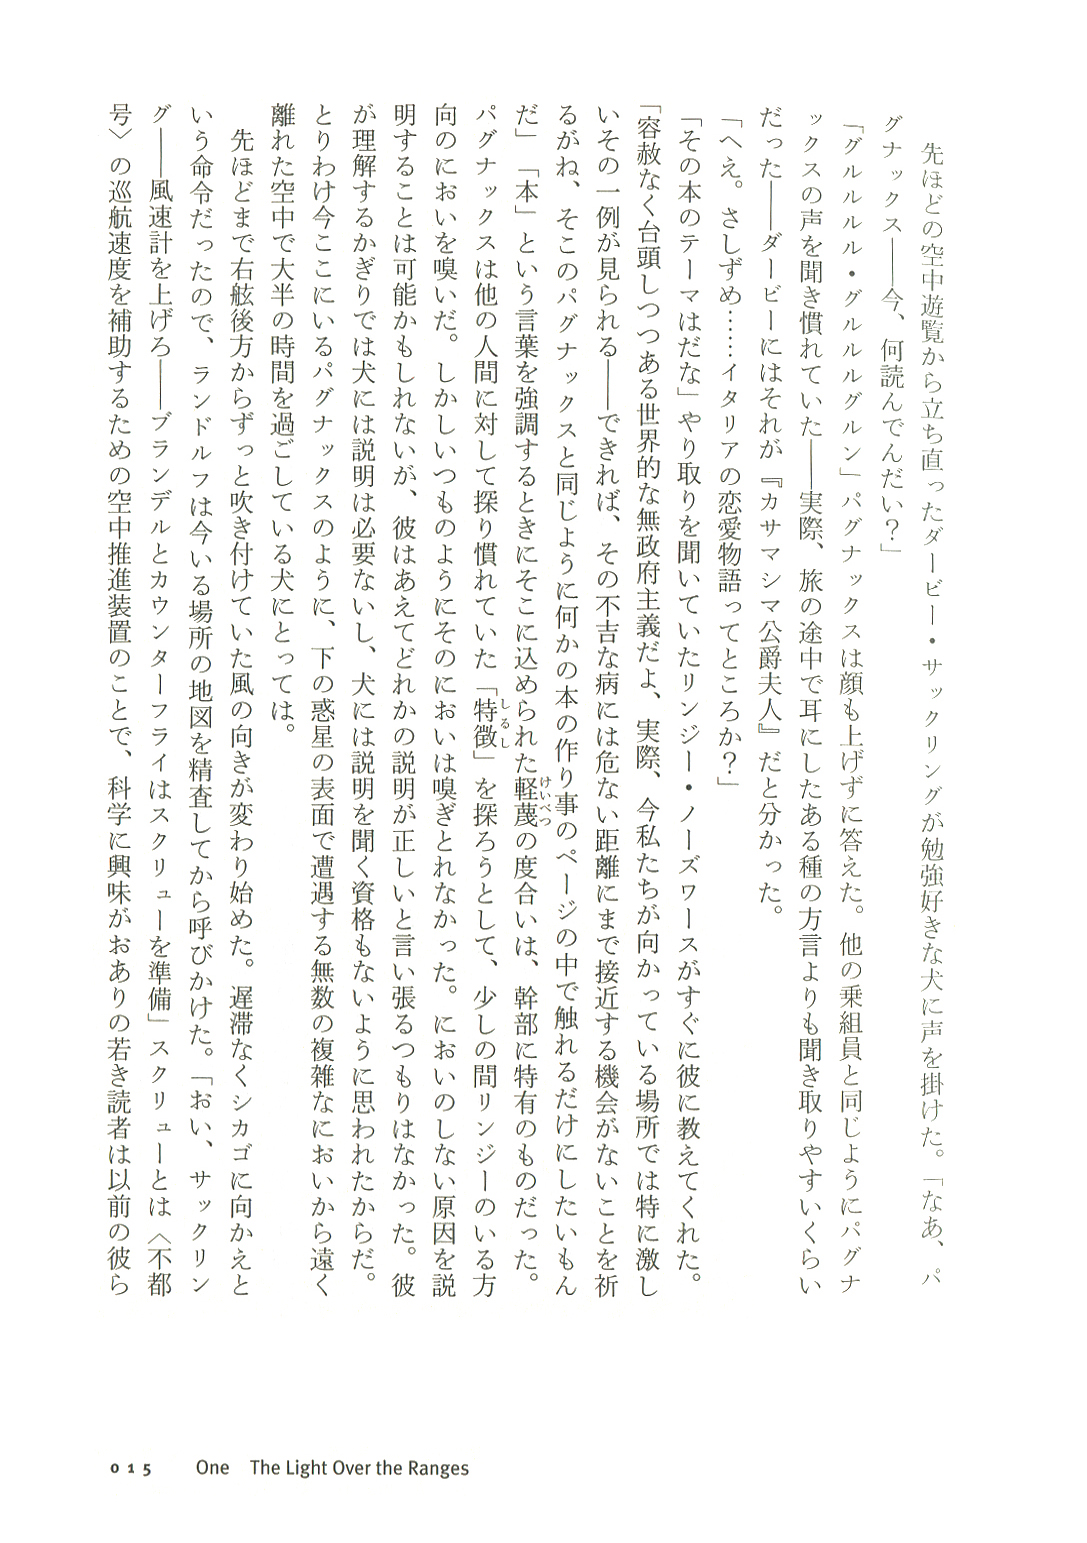 先ほどの空中遊覧から立ち直ったダービー・サックリングが勉強好きな犬に声を掛けた。「なあ、パ
グナックス――今、何読んでんだい？」
「グルルルル・グルルルルグルン」パグナックスは顔も上げずに答えた。他の乗組員と同じようにパグナ
ックスの声を聞き慣れていた――実際、旅の途中で耳にしたある種の方言よりも聞き取りやすいくらい
だった――ダービーにはそれが『カサマシマ公爵夫人』だと分かった。
「へえ。さしずめ……イタリアの恋愛物語ってところか？」
「その本のテーマはだな」やり取りを聞いていたリンジー・ノーズワースがすぐに彼に教えてくれた。
「容赦なく台頭しつつある世界的な無政府主義だよ、実際、今私たちが向かっている場所では特に激し
いその一例が見られる――できれば、その不吉な病には危ない距離にまで接近する機会がないことを祈
るがね、そこのパグナックスと同じように何かの本の作り事のページの中で触れるだけにしたいもん
だ」「本」という言葉を強調するときにそこに込められた軽蔑の度合いは、幹部に特有のものだった。
パグナックスは他の人間に対して探り慣れていた「特徴」を探ろうとして、少しの間リンジーのいる方
向のにおいを嗅いだ。しかしいつものようにそのにおいは嗅ぎとれなかった。においのしない原因を説
明することは可能かもしれないが、彼はあえてどれかの説明が正しいと言い張るつもりはなかった。彼
が理解するかぎりでは犬には説明は必要ないし、犬には説明を聞く資格もないように思われたからだ。
とりわけ今ここにいるパグナックスのように、下の惑星の表面で遭遇する無数の複雑なにおいから遠く
離れた空中で大半の時間を過ごしている犬にとっては。
　先ほどまで右舷後方からずっと吹き付けていた風の向きが変わり始めた。遅滞なくシカゴに向かえと
いう命令だったので、ランドルフは今いる場所の地図を精査してから呼びかけた。「おい、サックリン
グ――風速計を上げろ――ブランデルとカウンターフライはスクリューを準備」スクリューとは〈不都
号〉の巡航速度を補助するための空中推進装置のことで、科学に興味がおありの若き読者は以前の彼ら
しるし
けいべつ
015　One　The Light Over the Ranges